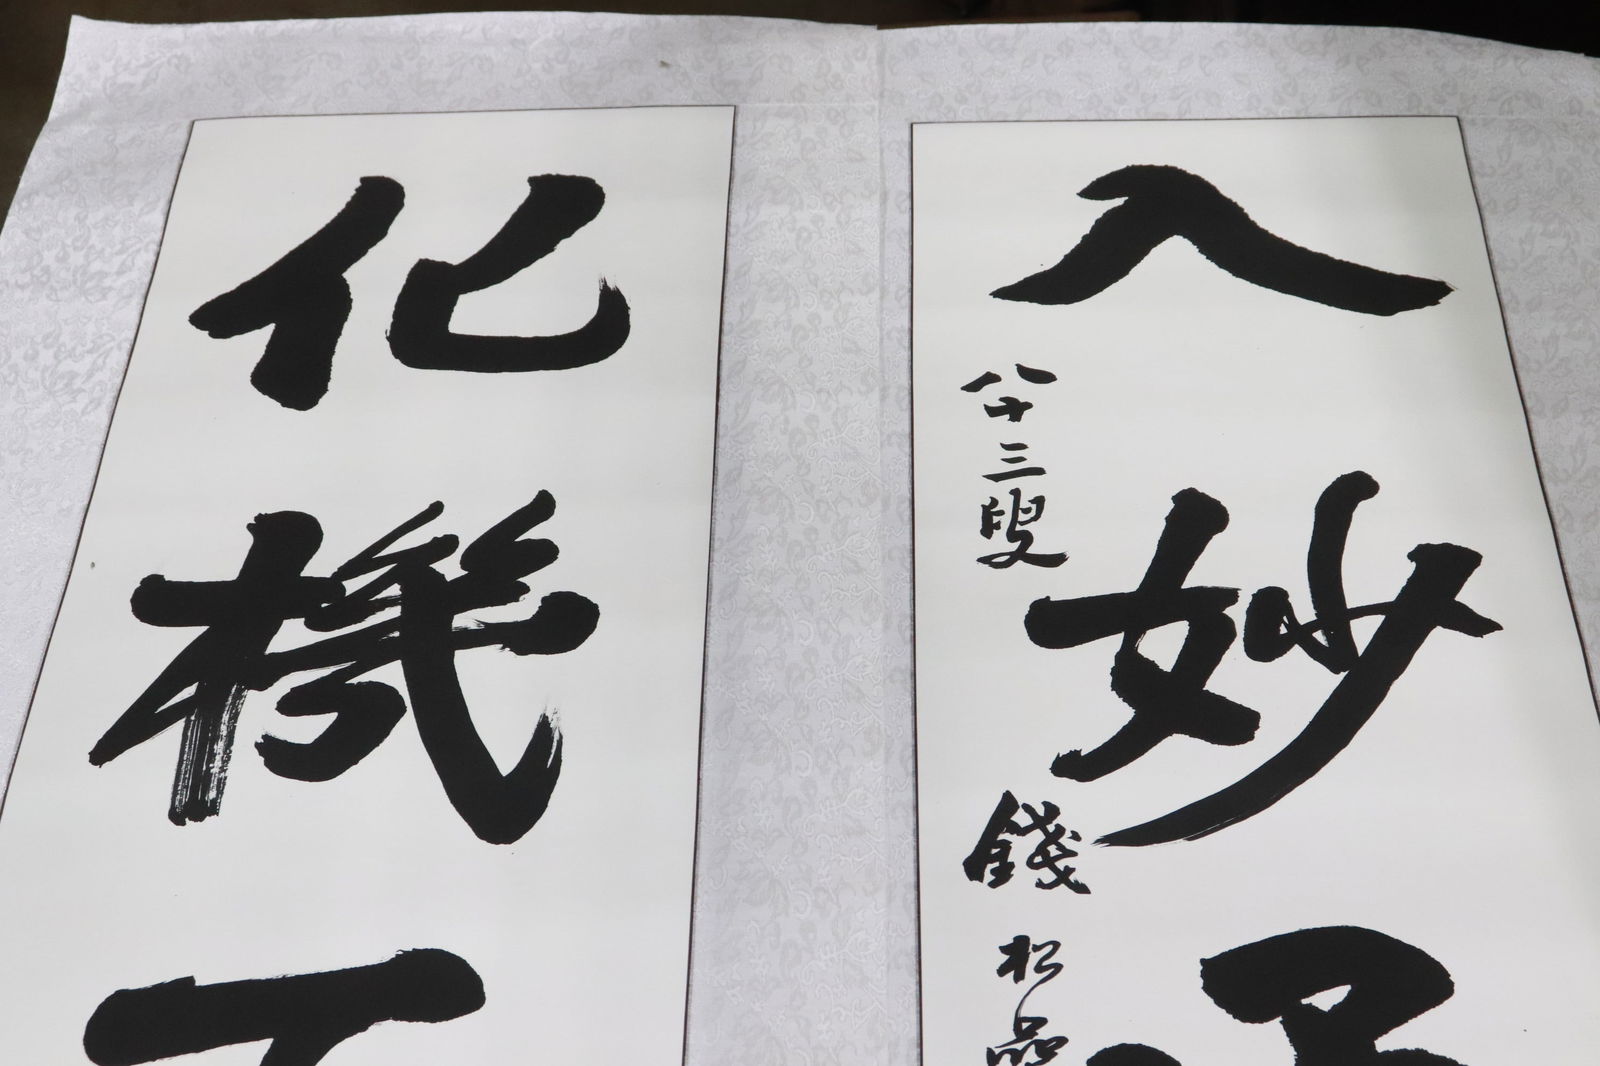 入妙
八十三叟
錢松喦
化機